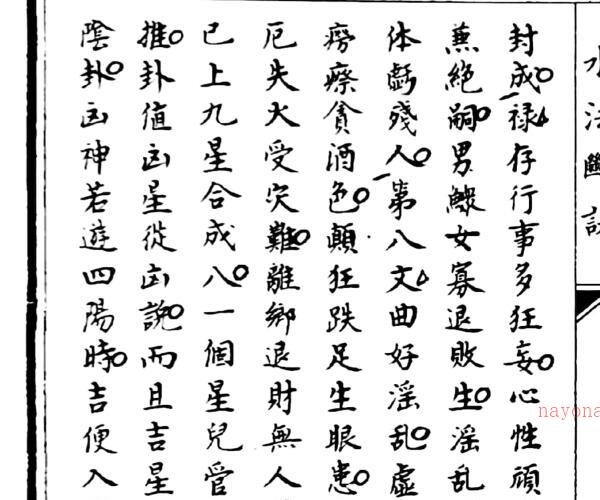 水法斷訣
封成祿存行事多狂妄心性頑
蕉絶嗣男鰥女寡退敗生淫乱
体虧殘人第八文曲好淫乱虚
癆瘵貪酒色顛狂跌足生眼患
厄失火受灾難離鄉退財無人
已上九星合成八一個星兒管
推卦值凶星從凶說而且吉星
陰卦凶神若遊四陽時吉便入
nayona